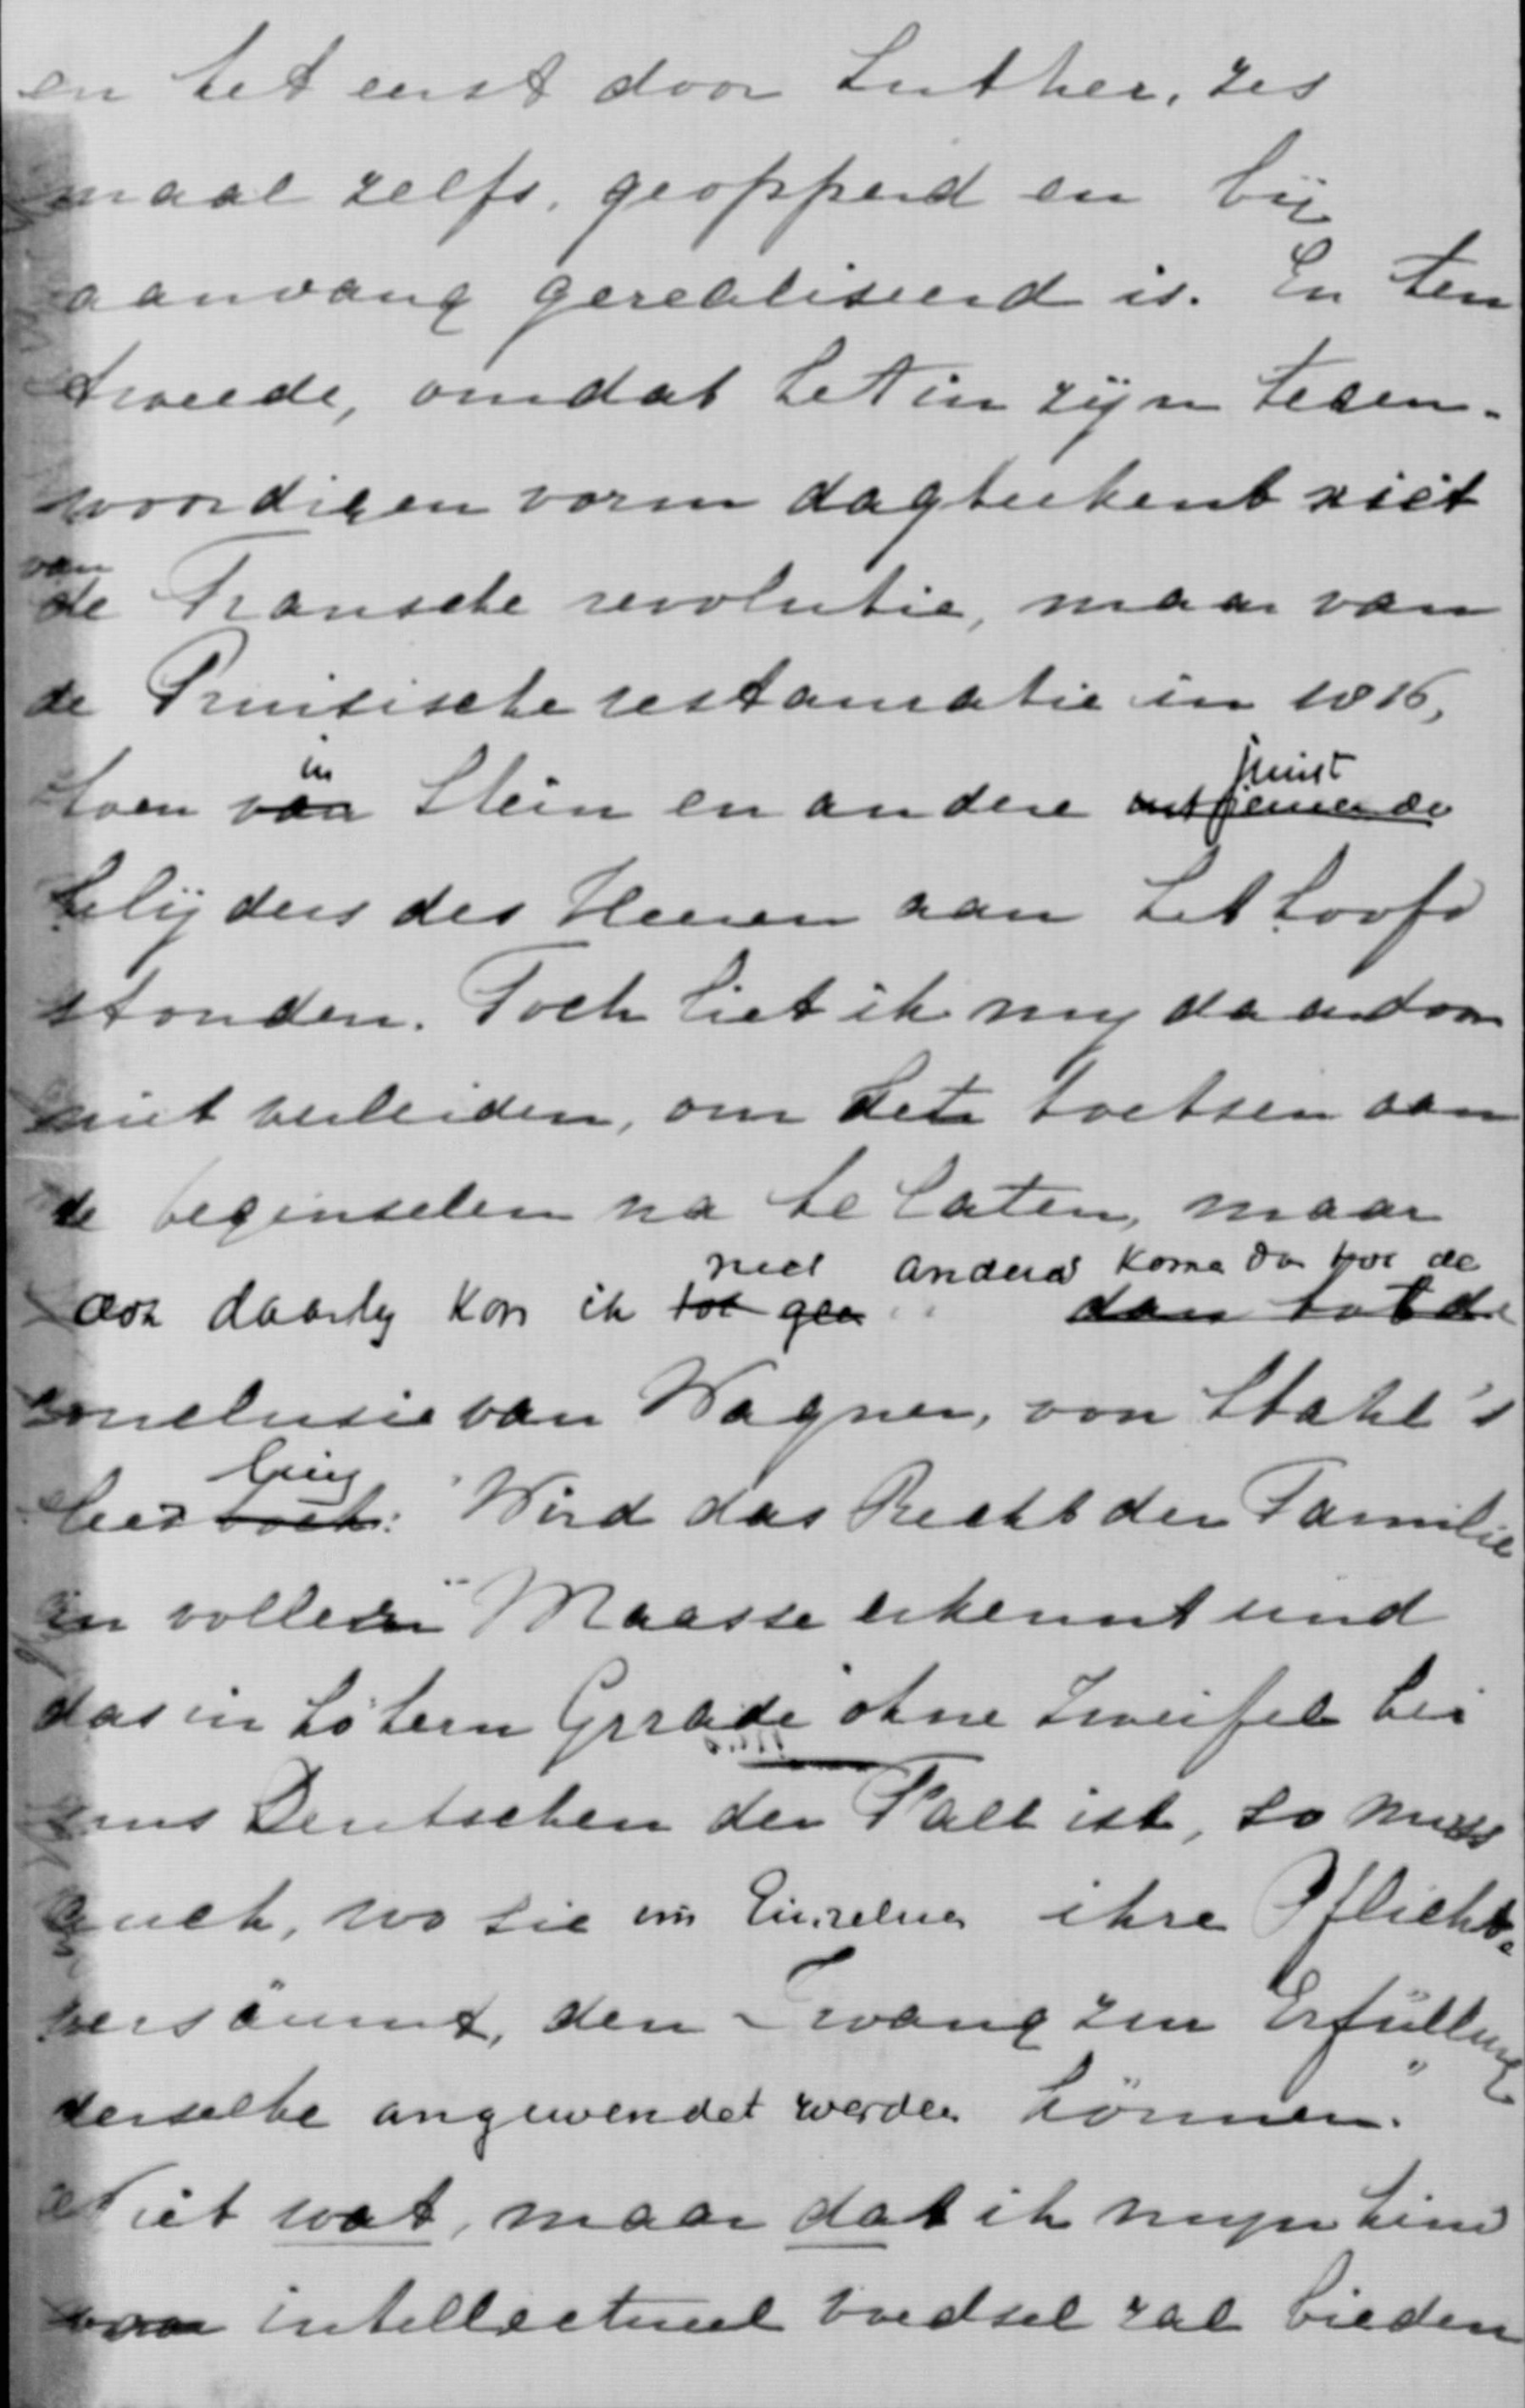 en het eerst door Luther, zes
maal zelfs, geopperd en bij
aanvang gerealiseerd is. En ten
tweede, omdat het in zijn tegen-
woordigen vorm dagteekent niet
van
de Fransche revolutie, maar van
de Pruisische restauratie in 1816,
in juist
toen van Stein en andere
belijders des Heeren aan het hoofd
stonden. Toch liet ik mij daardoor
niet verleiden, om het te toetsen aan
de beginselen na te laten, maar
niet anders komen dan tot de
ook daarbij kon ik tot geen dan tot de
conclusie van Wagner, von Stahl's
ling
leer boek: "Wird das Recht der Familie
in vollem Maasse erkennt und
das in höhern Grade ohne Zweifel bei
uns Deutschen der Fall ist, so muss
auch, wo sie im Einzelnen ihre Pflicht
versäumt, den Zwang zur Erfüllung
derselbe angewendet werden können."
Niet wat, maar dat ik mijn kind
voor intellectueel voedsel zal bieden